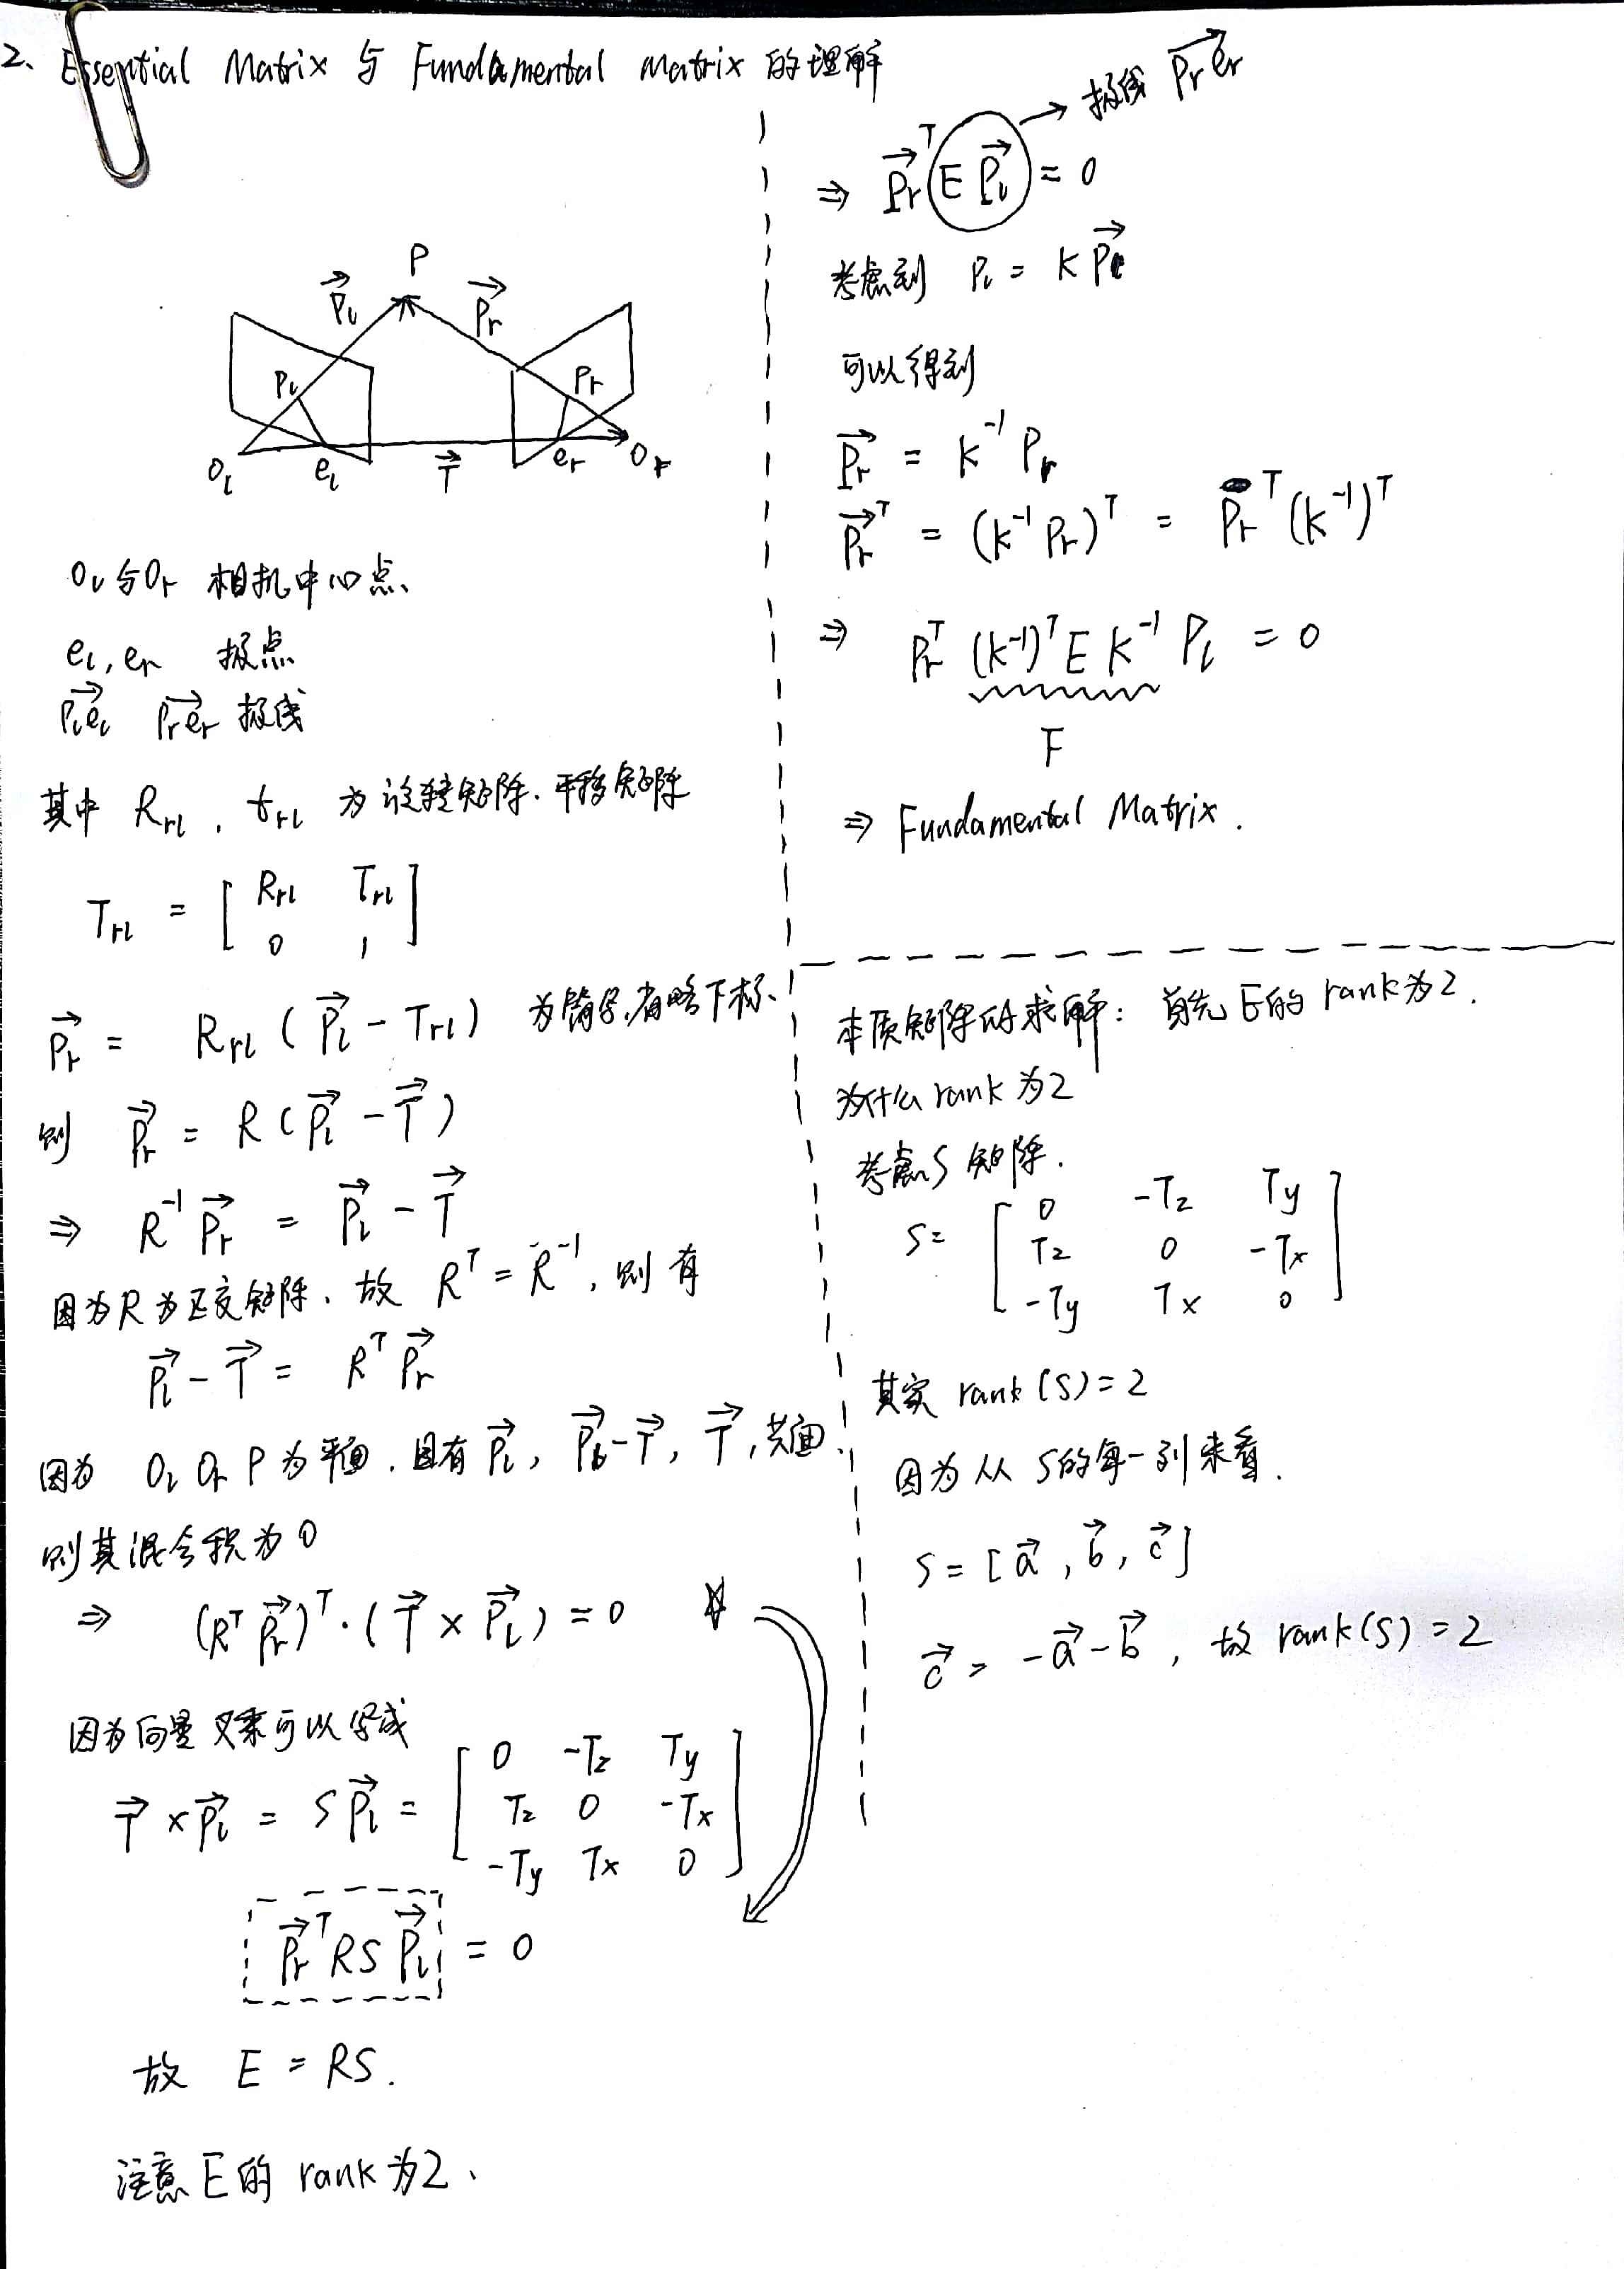 2、Essential Matrix 与 Fundamental matrix 的理解
P
→Pl →Pr
Pl Pr
Ol el →T er Or
Ol与Or 相机中心点、
el, er 极点
→Plel →Prer 极线
其中 Rrl , trl 为旋转矩阵、平移矩阵
Trl = [ Rrl Trl
0 1 ]
→Pr = Rrl ( →Pl - Trl ) 为简写,省略下标、
则 →Pr = R ( →Pl - →T )
⇒ R^-1 →Pr = →Pl - →T
因为R为正交矩阵、故 R^T = R^-1, 则有
→Pl - →T = R^T →Pr
因为 Ol Or P 为平面 , 且有 →Pl , →Pl - →T , →T , 共面
则其混合积为 0
⇒ (R^T →Pr)^T · ( →T × →Pl ) = 0
因为向量叉乘可以写成
→T × →Pl = S →Pl = [ 0 -Tz Ty
Tz 0 -Tx
-Ty Tx 0 ]
→Pr^T RS →Pl = 0
故 E = RS .
注意 E 的 rank 为2、
→ 极线 →Prer
⇒ →Pr^T E →Pl = 0
考虑到 Pl = K →Pl
可以得到
→Pr = K^-1 Pr
→Pr^T = (K^-1 Pr)^T = Pr^T (K^-1)^T
⇒ Pr^T (K^-1)^T E K^-1 Pl = 0
F
⇒ Fundamental Matrix .
本质矩阵的求解: 首先 E的 rank为2 .
为什么 rank 为2
考虑S 矩阵 .
S = [ 0 -Tz Ty
Tz 0 -Tx
-Ty Tx 0 ]
其实 rank (S) = 2
因为从 S的每一列来看 .
S = [ →a , →b , →c ]
→c = -→a - →b , 故 rank(S) = 2